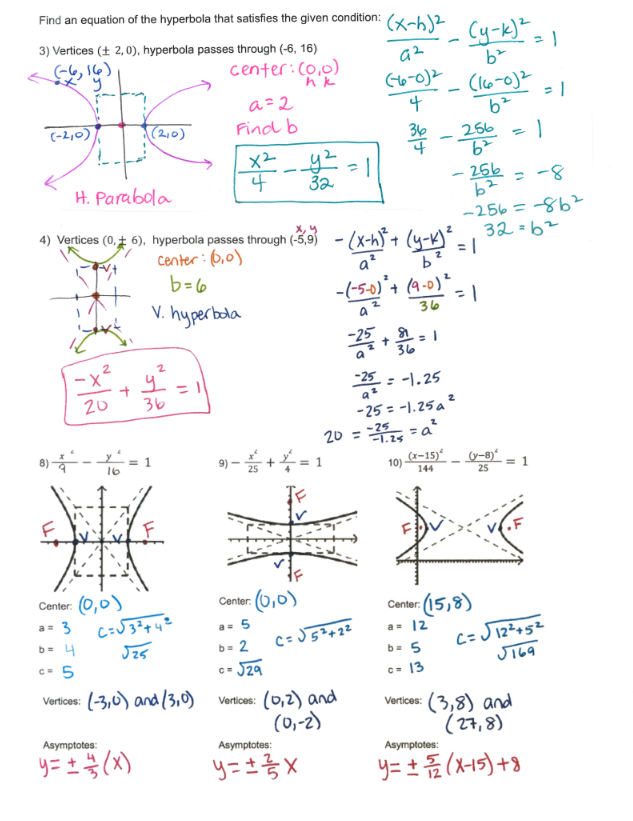 Find an equation of the hyperbola that satisfies the given condition:
(x-h)²/a² - (y-k)²/b² = 1
3) Vertices (± 2,0), hyperbola passes through (-6, 16)
(-6,16)
x y
center: (0,0)
h k
a=2
Find b
(-6-0)²/4 - (16-0)²/b² = 1
(-2,0)
(2,0)
x²/4 - y²/32 = 1
36/4 - 256/b² = 1
-256/b² = -8
-256 = -8b²
32 = b²
H. Parabola
4) Vertices (0, ± 6), hyperbola passes through (-5,9)
x, y
center: (0,0)
b=6
V. hyperbola
-(x-h)²/a² + (y-k)²/b² = 1
-(-5-0)²/a² + (9-0)²/36 = 1
-25/a² + 81/36 = 1
-25/a² = -1.25
-25 = -1.25a²
20 = -25/-1.25 = a²
-x²/20 + y²/36 = 1
8) x²/9 - y²/16 = 1
9) - x²/25 + y²/4 = 1
10) (x-15)²/144 - (y-8)²/25 = 1
F V V F
F V V F
F V V F
Center: (0,0)
a = 3
b = 4
c = 5
c=√3²+4²
√25
Vertices: (-3,0) and (3,0)
Asymptotes:
y= ± 4/3 (x)
Center: (0,0)
a = 5
b = 2
c = √29
c=√5²+2²
Vertices: (0,2) and
(0,-2)
Asymptotes:
y=± 2/5 x
Center: (15,8)
a = 12
b = 5
c = 13
c=√12²+5²
√169
Vertices: (3,8) and
(27,8)
Asymptotes:
y= ± 5/12 (x-15)+8